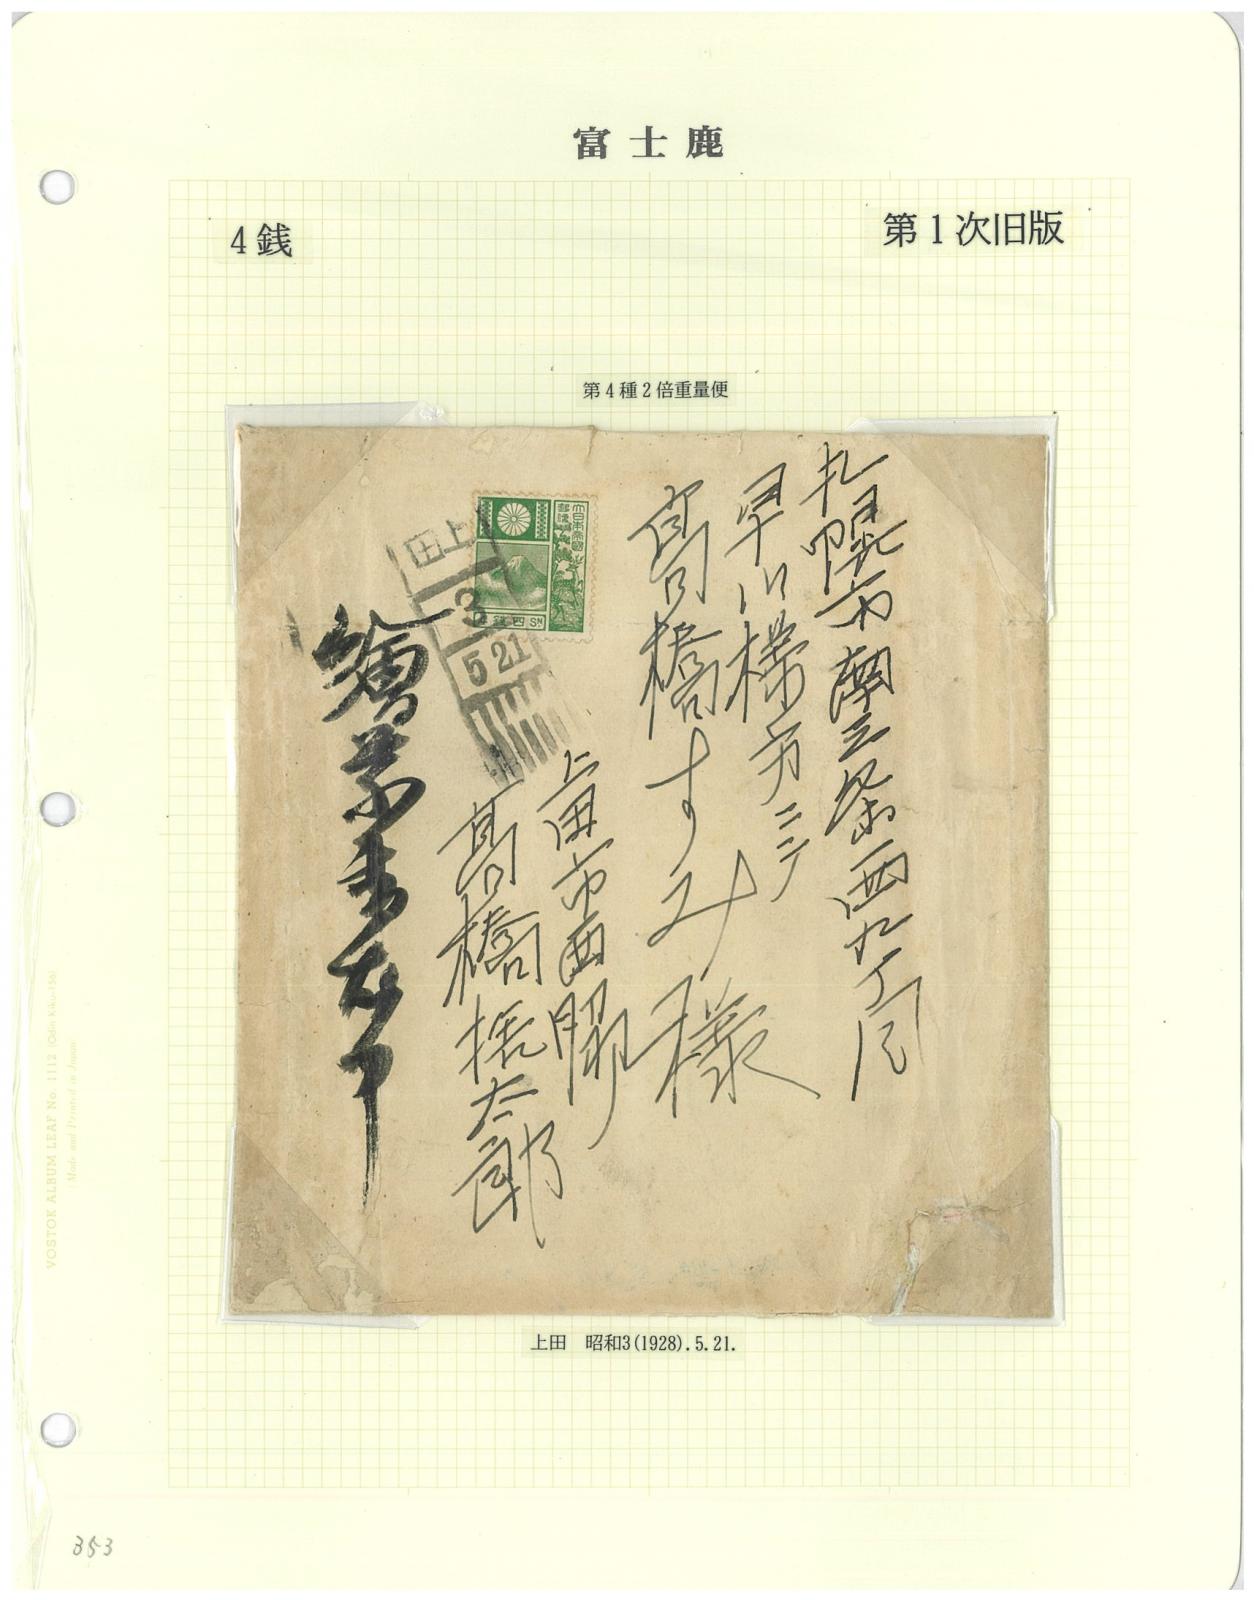 富士鹿
4銭
第1次旧版
第4種2倍重量便
札幌市南三条西九丁目
早川様方ニテ
高橋すみ様
大日本帝國
郵便
四銭 4SN
上田
3
5 21
上田市西脇
高橋
太郎
繪葉書在中
上田 昭和3(1928).5.21.
VOSTOK ALBUM LEAF No. 1112
Made and Printed in Japan
353